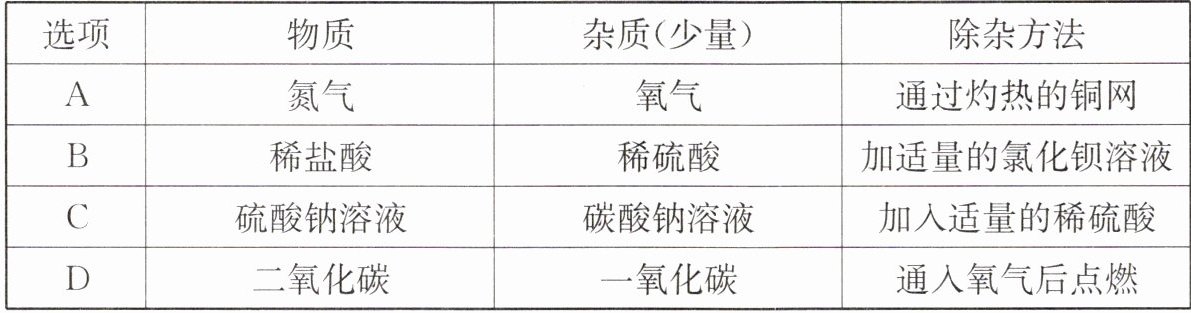 选项 物质 杂质(少量) 除杂方法
A 氮气 氧气 通过灼热的铜网
B 稀盐酸 稀硫酸 加适量的氯化钡溶液
C 硫酸钠溶液 碳酸钠溶液 加入适量的稀硫酸
D 二氧化碳 一氧化碳 通入氧气后点燃